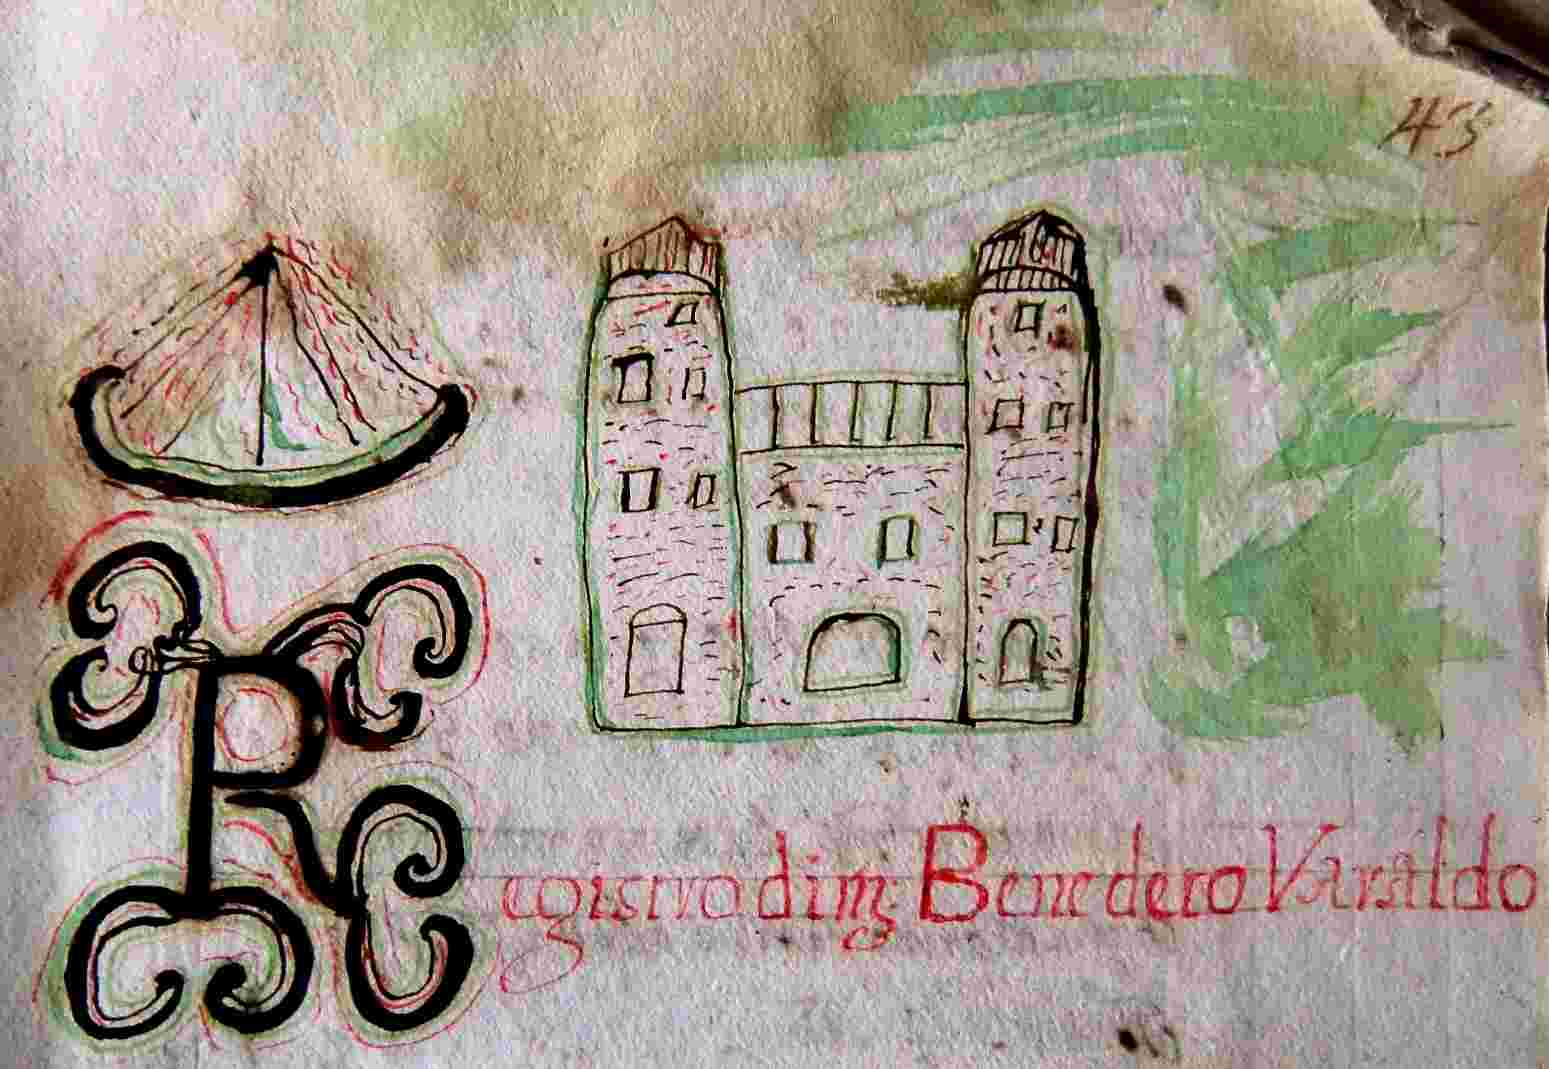 43
Registro di mͬ Benedeto Varaldo